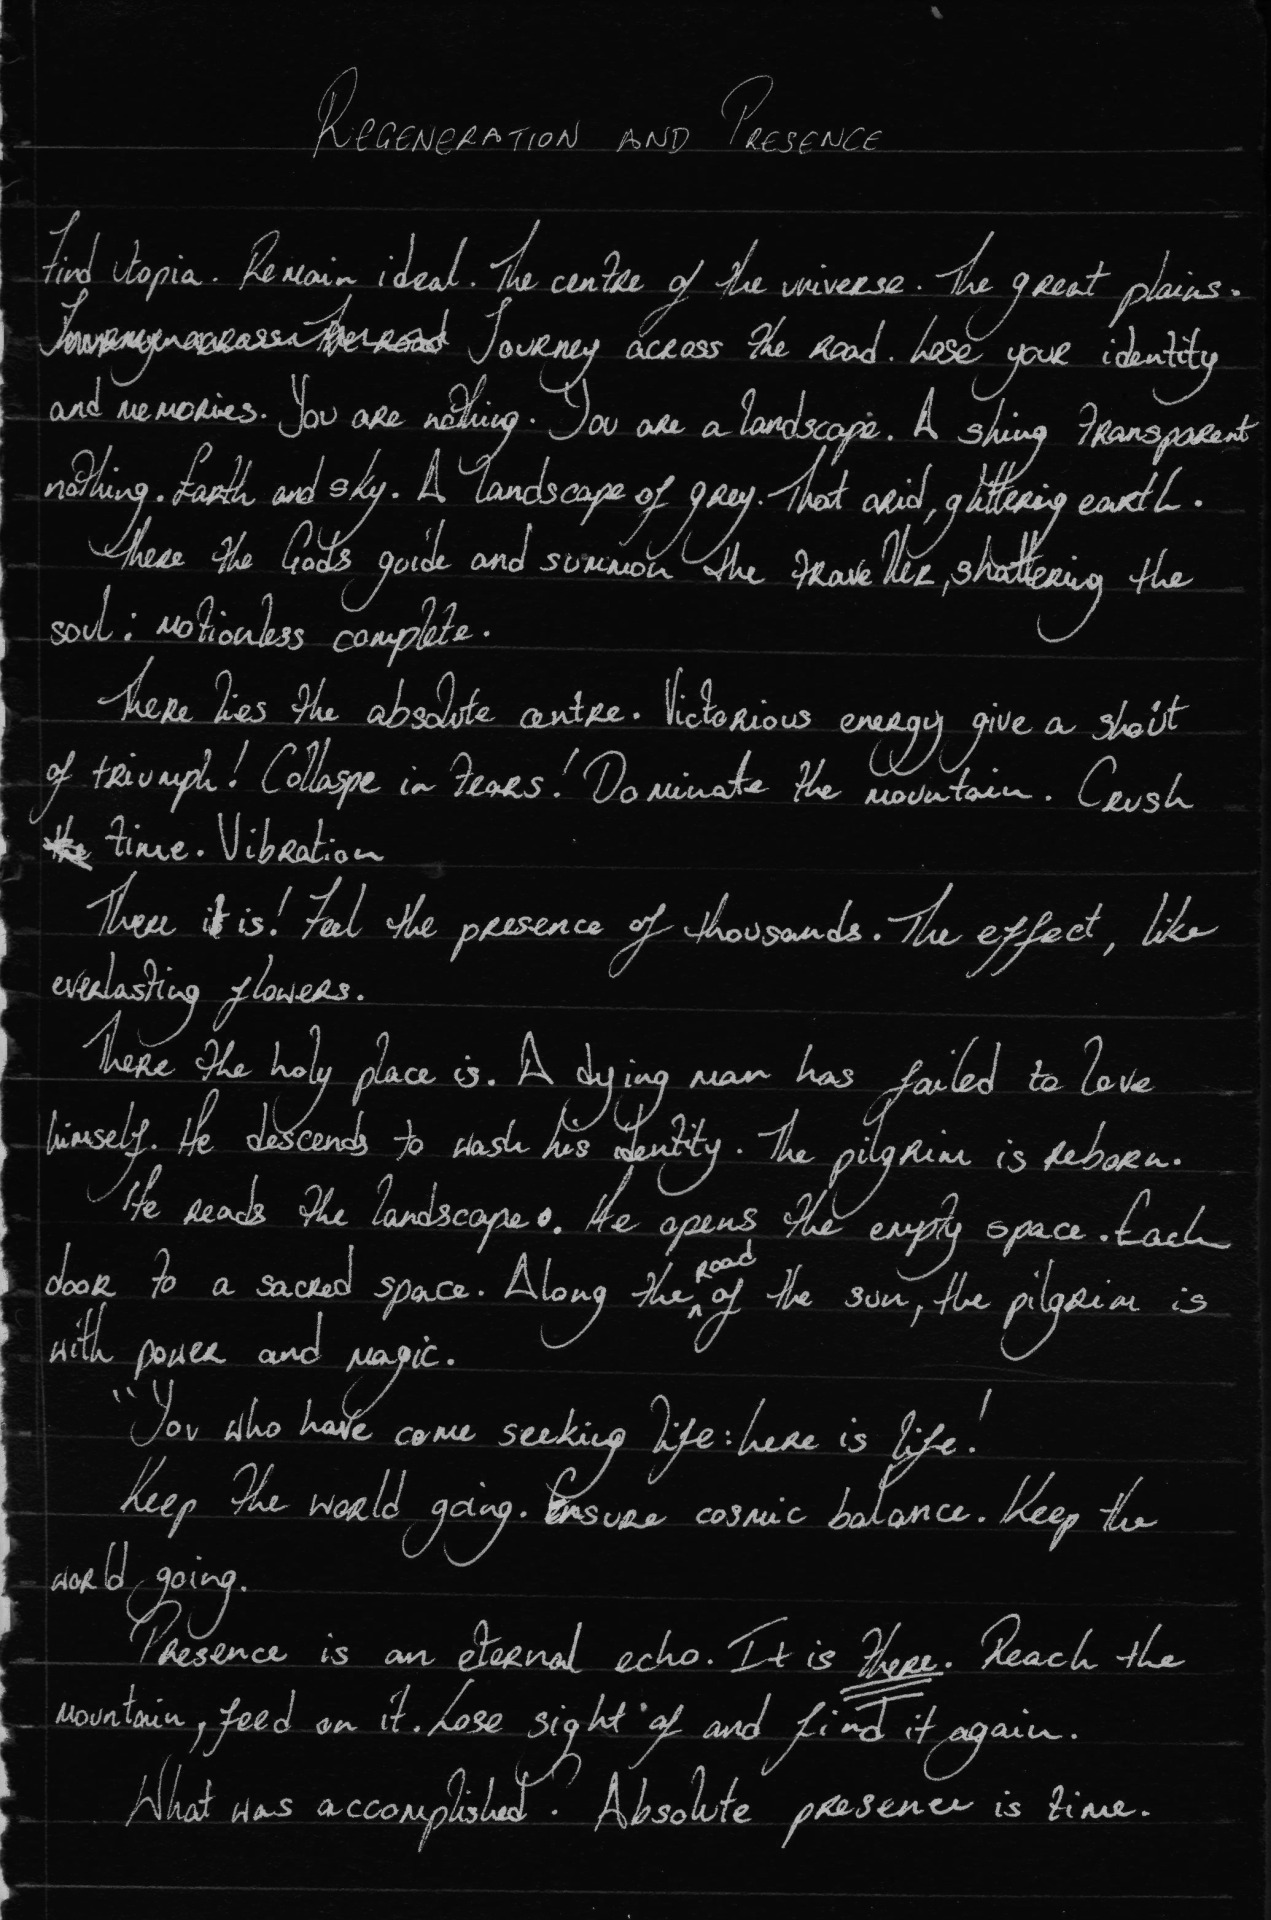 REGENERATION AND PRESENCE
Find utopia. Remain ideal. The centre of the universe. The great plains.
Journey across the road. Lose your identity
and memories. You are nothing. You are a landscape. A shing transparent
nothing. Earth and sky. A landscape of grey. That arid, glittering earth.
There the Gods guide and summon the traveller, shattering the
soul: motionless complete.
There lies the absolute centre. Victorious energy give a shout
of triumph! Collaspe in tears! Dominate the mountain. Crush
the time. Vibration
There it is! Feel the presence of thousands. The effect, like
everlasting flowers.
There the holy place is. A dying man has failed to love
himself. He descends to wash his identity. The pilgrim is reborn.
He reads the landscape. He opens the empty space. Each
door to a sacred space. Along the road of the sun, the pilgrim is
with power and magic.
"You who have come seeking life: here is life!
Keep the world going. Ensure cosmic balance. Keep the
world going.
Presence is an eternal echo. It is there. Reach the
mountain, feed on it. Lose sight of and find it again.
What was accomplished? Absolute presence is time.